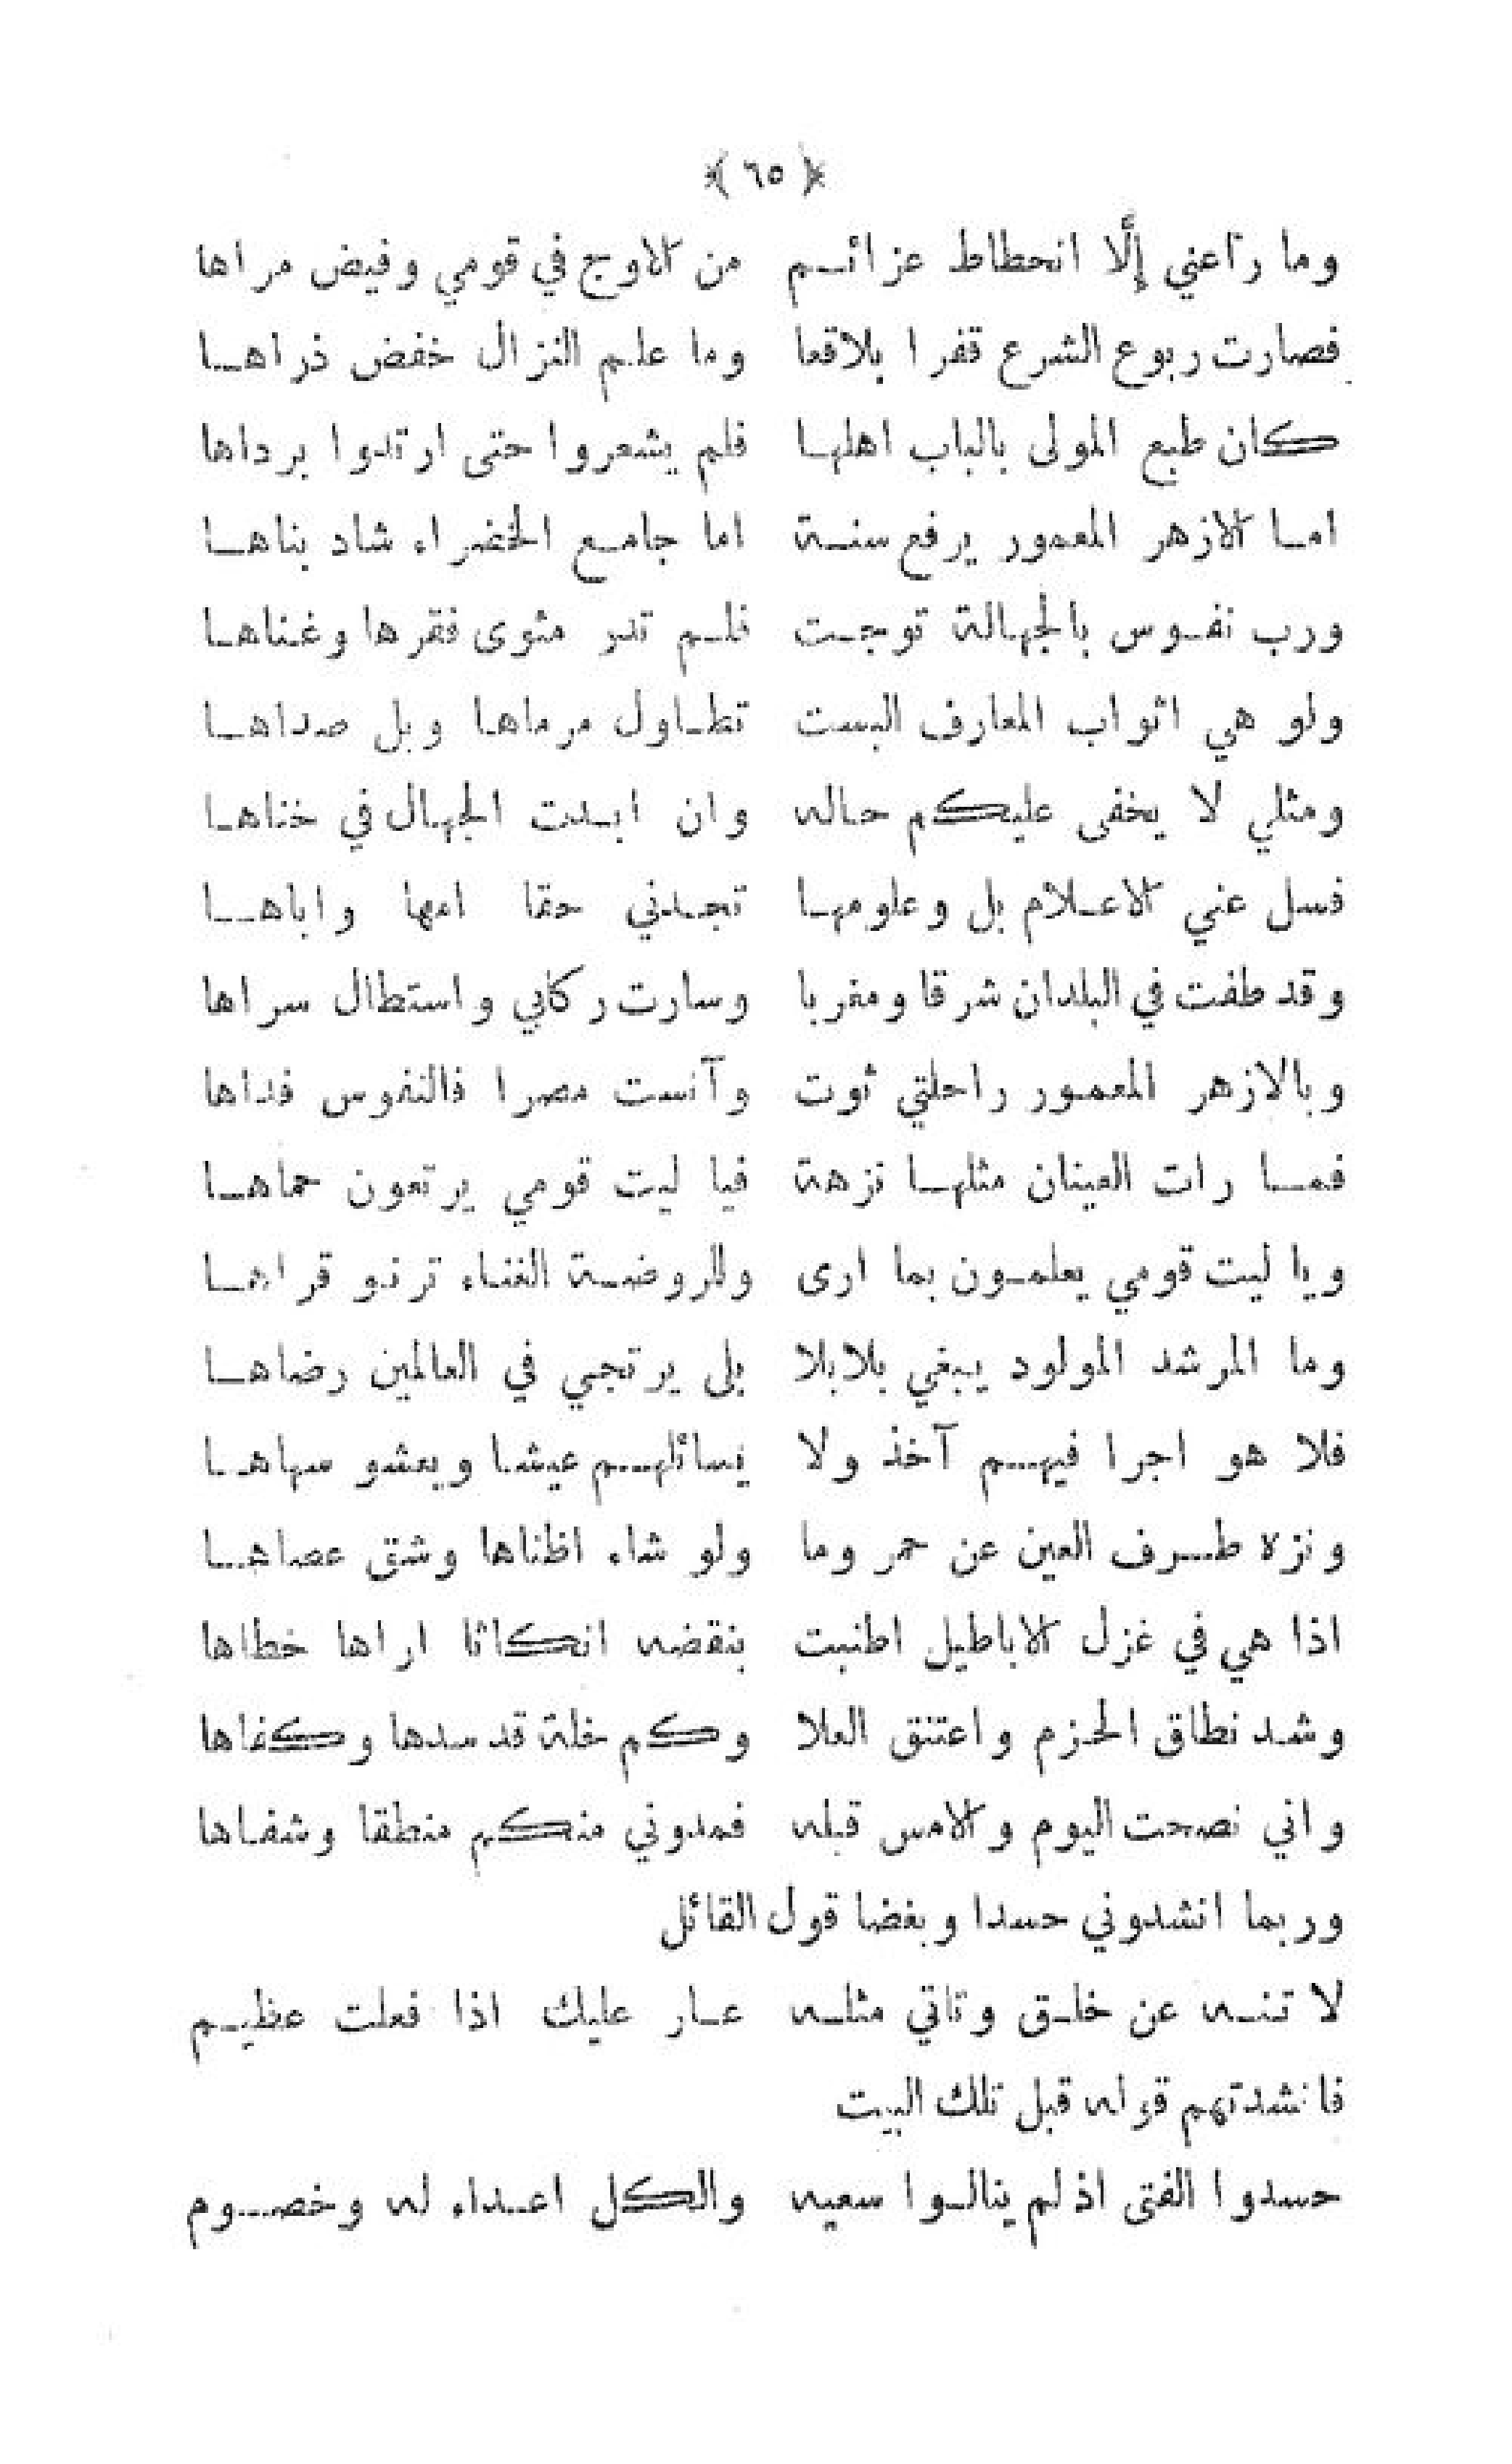 ﴿ ٦٥ ﴾
وما راعني إلّا انحطاط عزائم من الاوج في قومي وفيض مراها
فصارت ربوع الشرع قفرا بلاقعا وما علم النزال خفض ذراها
كان طبع المولى بالباب اهلها فلم يشعروا حتى ارتدوا برداها
اما الازهر المعمور يرفع سنة اما جامع الخضراء شاد بناها
ورب نفوس بالجهالة توجت فلم تدر مثوى فقرها وغناها
ولو هي اثواب المعارف البست تطاول مرماها وبل صداها
ومثلي لا يخفى عليكم حاله وان ابدت الجهال في خناها
فسل عني الاعلام بل وعلومها تجدني حقا امها واباها
وقد طفت في البلدان شرقا ومغربا وسارت ركابي واستطال سراها
وبالازهر المعمور راحلتي ثوت وآنست مصرا فالنفوس فداها
فما رات العينان مثلها نزهة فيا ليت قومي يرتعون حماها
ويا ليت قومي يعلمون بما ارى وللروضة الغناء ترنو قراها
وما المرشد المولود يبغي بلابلا بلى يرتجي في العالمين رضاها
فلا هو اجرا فيهم آخذ ولا يسائلهم عيشا ويعشو سهاها
ونزه طرف العين عن حمر وما ولو شاء اظناها وشق عصاها
اذا هي في غزل الاباطيل اطنبت بنقضه انكاثا اراها خطاها
وشد نطاق الحزم واعتنق العلا وكم خلة قد سدها وكفاها
واني نصحت اليوم والامس قبله فمدوني منكم منطقا وشفاها
وربما انشدوني حسدا وبغضا قول القائل
لا تنه عن خلق وتاتي مثله عار عليك اذا فعلت عظيم
فانشدتهم قوله قبل تلك البيت
حسدوا الفتى اذ لم ينالوا سعيه والكل اعداء له وخصوم